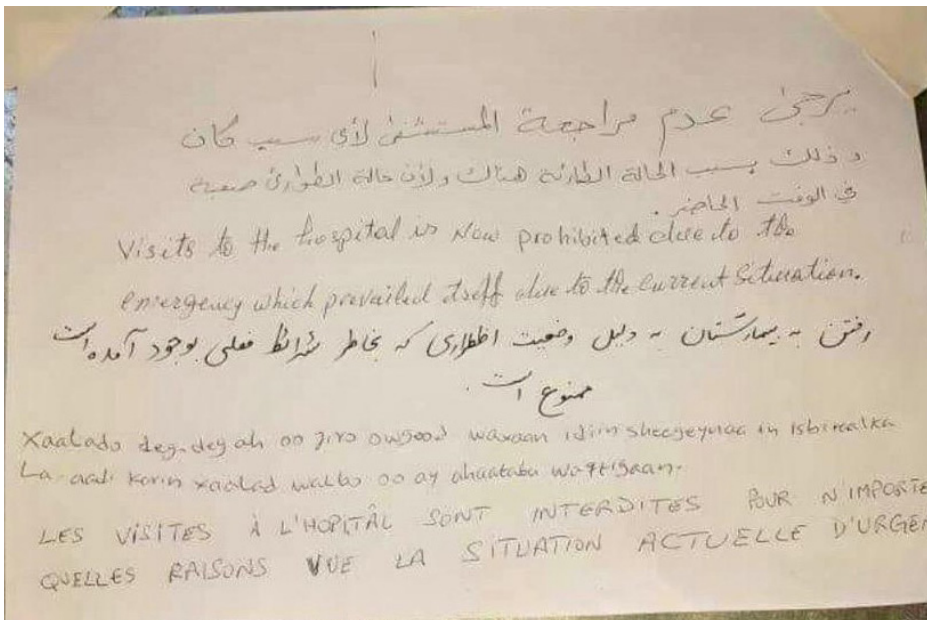 يرجى عدم مراجعة المستشفى لأي سبب كان
و ذلك بسبب الحالة الطارئة هناك ولأن حالة الطوارئ صعبة
في الوقت الحاضر.
Visits to the hospital is Now prohibited due to the
emergency which prevailed itself due to the current Situation.
رفتن به بیمارستان به دلیل وضعیت اظطراری که بخاطر شرائط فعلی بوجود آمده است
ممنوع است.
Xaalado deg.deg ah oo jiro owgeed waxaan idiin sheegeynaa in isbitaalka
La aadi karin xaalad walbo oo ay ahaataba waqtigaan.
LES VISITES À L'HOPITÂL SONT INTERDITES POUR N'IMPORTE
QUELLES RAISONS VUE LA SITUATION ACTUELLE D'URGEN